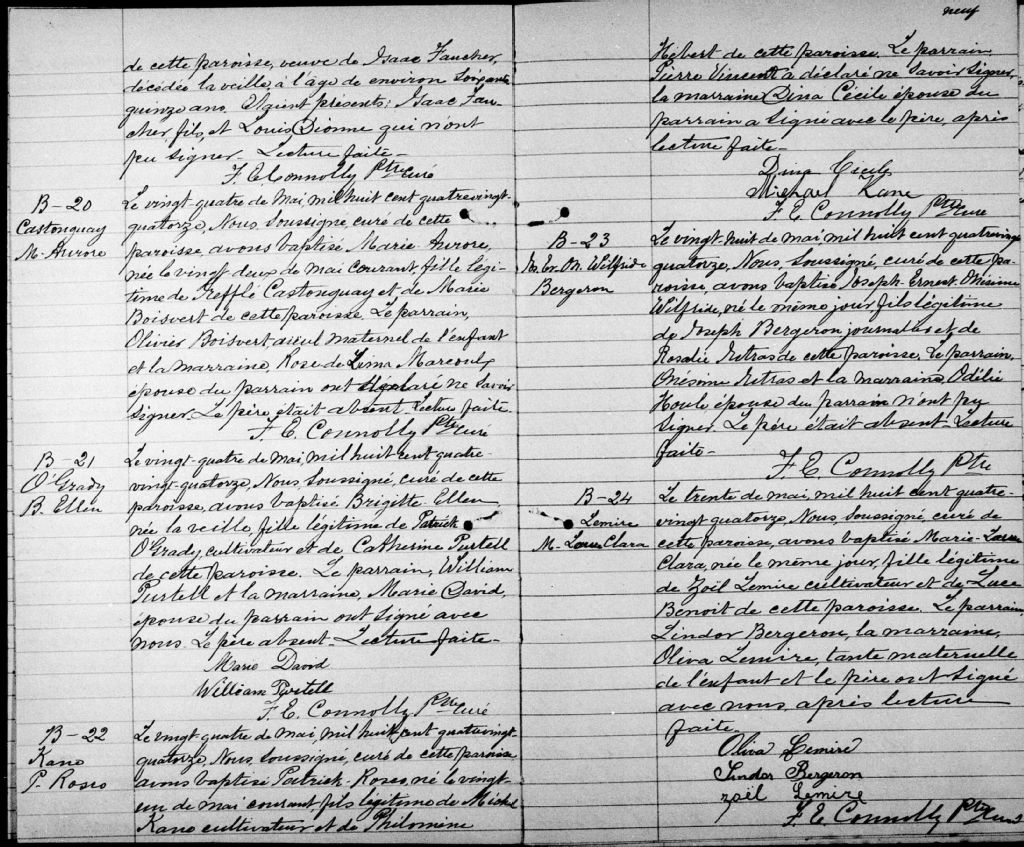 de cette paroisse, veuve de Isaac Faucher,
décédée la veille, à l'âge de environ soixante
quinze ans. Etaient présents: Isaac Fau-
cher, fils, et Louis Dionne qui n'ont
pu signer. Lecture faite-
F. E. Connolly Ptre Curé
B-20
Castonguay
M. Aurore
Le vingt-quatre de Mai, mil huit cent quatrevingt-
quatorze, Nous, Soussigné, curé de cette
paroisse, avons baptisé Marie Aurore,
née le vingt deux de mai courant, fille légi-
time de Castonguay et de Marie
Boisvert de cette paroisse. Le parrain,
Olivier Boisvert aieul maternel de l'enfant
et la marraine, Rose-de-Lima Marcoux,
épouse du parrain ont ne savoir
signer. Le père était absent. Lecture faite.
F. E. Connolly Ptre Curé
B-21
O'Grady
B. Ellen
Le vingt-quatre de mai, mil huit cent quatre-
vingt-quatorze, Nous, Soussigné, curé de cette
paroisse, avons baptisé Brigitte-Ellen
née la veille, fille légitime de Patrick
O'Grady, cultivateur et de Catherine Purtell
de cette paroisse. Le parrain, William
Purtell et la marraine, Marie David,
épouse du parrain ont signé avec
nous. Le père absent. Lecture faite-
Marie David
William Purtell
F. E. Connolly Ptre Curé
B-22
Kane
P. Roses
Le vingt-quatre de mai, mil huit cent quatrevingt-
quatorze, Nous, Soussigné, curé de cette paroisse
avons baptisé Patrick-Roses, né le vingt-
un de mai courant fils légitime de Michel
Kane cultivateur et de Philomène
neuf
Hébert de cette paroisse. Le parrain
Pierre Vincent a déclaré ne savoir signer,
la marraine Dina Cécile épouse du
parrain a signé avec le père, après
lecture faite-
Dina Cecile
Michael Kane
F. E. Connolly Ptre Curé
B-23
Er. On. Wilfride
Bergeron
Le vingt-huit de mai, mil huit cent quatrevingt
quatorze, Nous, soussigné, curé de cette pa-
roisse, avons baptisé Joseph-Ernest-Onésime
Wilfride, né le même jour, fils légitime
de Joseph Bergeron journalier et de
Rosalie Retras de cette paroisse. Le parrain,
Onésime Retras et la marraine Odélie
Houle épouse du parrain n'ont pu
signer. Le père était absent- Lecture
faite-
F. E. Connolly Ptre
B-24
Lemire
M. Clara
Le trente de mai, mil huit cent quatre-
vingt quatorze, Nous, Soussigné, curé de
cette paroisse, avons baptisé Marie-
Clara, née le même jour, fille légitime
de Zoël Lemire cultivateur et de Luce
Benoit de cette paroisse. Le parrain,
Lindor Bergeron, la marraine,
Oliva Lemire, tante maternelle
de l'enfant et le père ont signé
avec nous, après lecture
faite.
Oliva Lemire
Lindor Bergeron
zoël Lemire
F. E. Connolly Ptre Curé